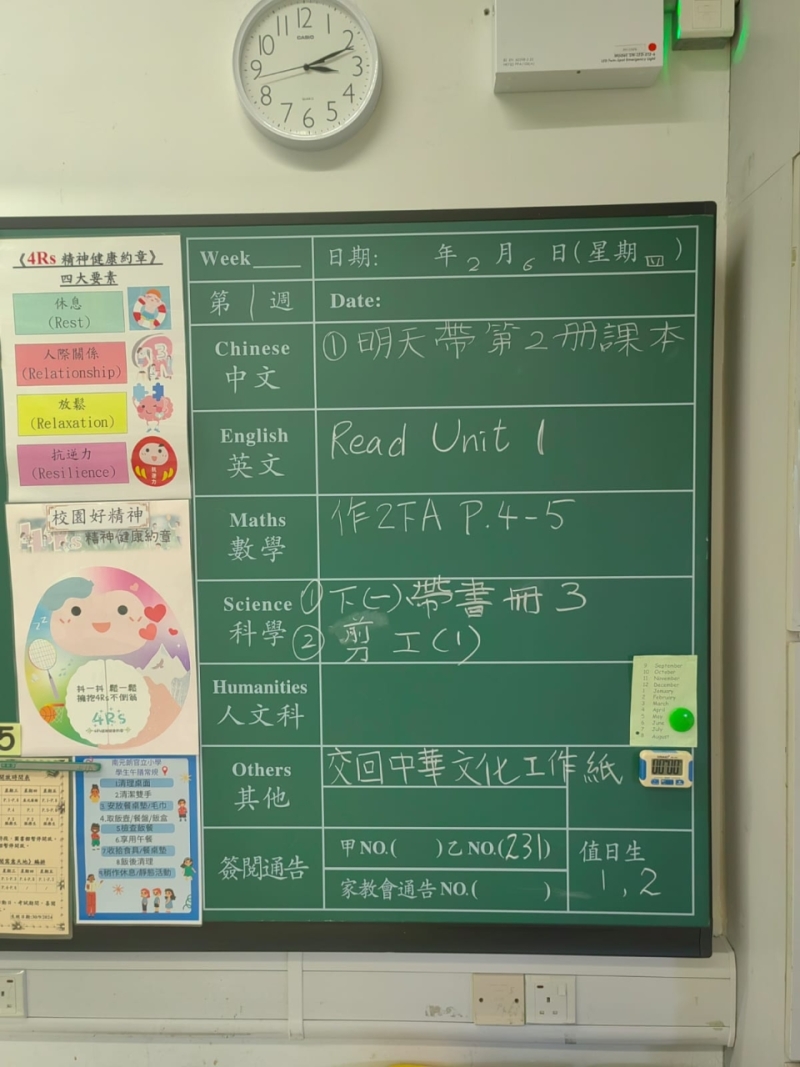 12 1 2 3 4 5 6 7 8 9 10 11
CASIO
QUARTZ
《4Rs 精神健康約章》
四大要素
休息
(Rest)
人際關係
(Relationship)
放鬆
(Relaxation)
抗逆力
(Resilience)
校園好精神
4Rs 精神健康約章
抖一抖 鬆一鬆
擁抱4Rs不倒翁
4Rs
5
學生午膳常規
1清理桌面
2清潔雙手
3.安放餐桌墊/毛巾
4.取飯壺/餐盤/飯盒
5檢查飯餐
6.享用午餐
7收拾食具/餐桌墊
8飯後清理
9稍作休息/靜態活動
Week
日期: 年 2 月 6 日(星期 四)
第 1 週
Date:
Chinese
中文
① 明天帶第2冊課本
English
英文
Read Unit 1
Maths
數學
作2下A P.4-5
Science
科學
① 下(一)帶書冊3
② 剪 工(1)
Humanities
人文科
Others
其他
交回中華文化工作紙
簽閱通告
甲NO.( )乙NO.(231)
家教會通告NO.( )
值日生
1, 2
9 September
10 October
11 November
12 December
1 January
2 February
3 March
4 April
5 May
6 June
7 July
8 August
00:00